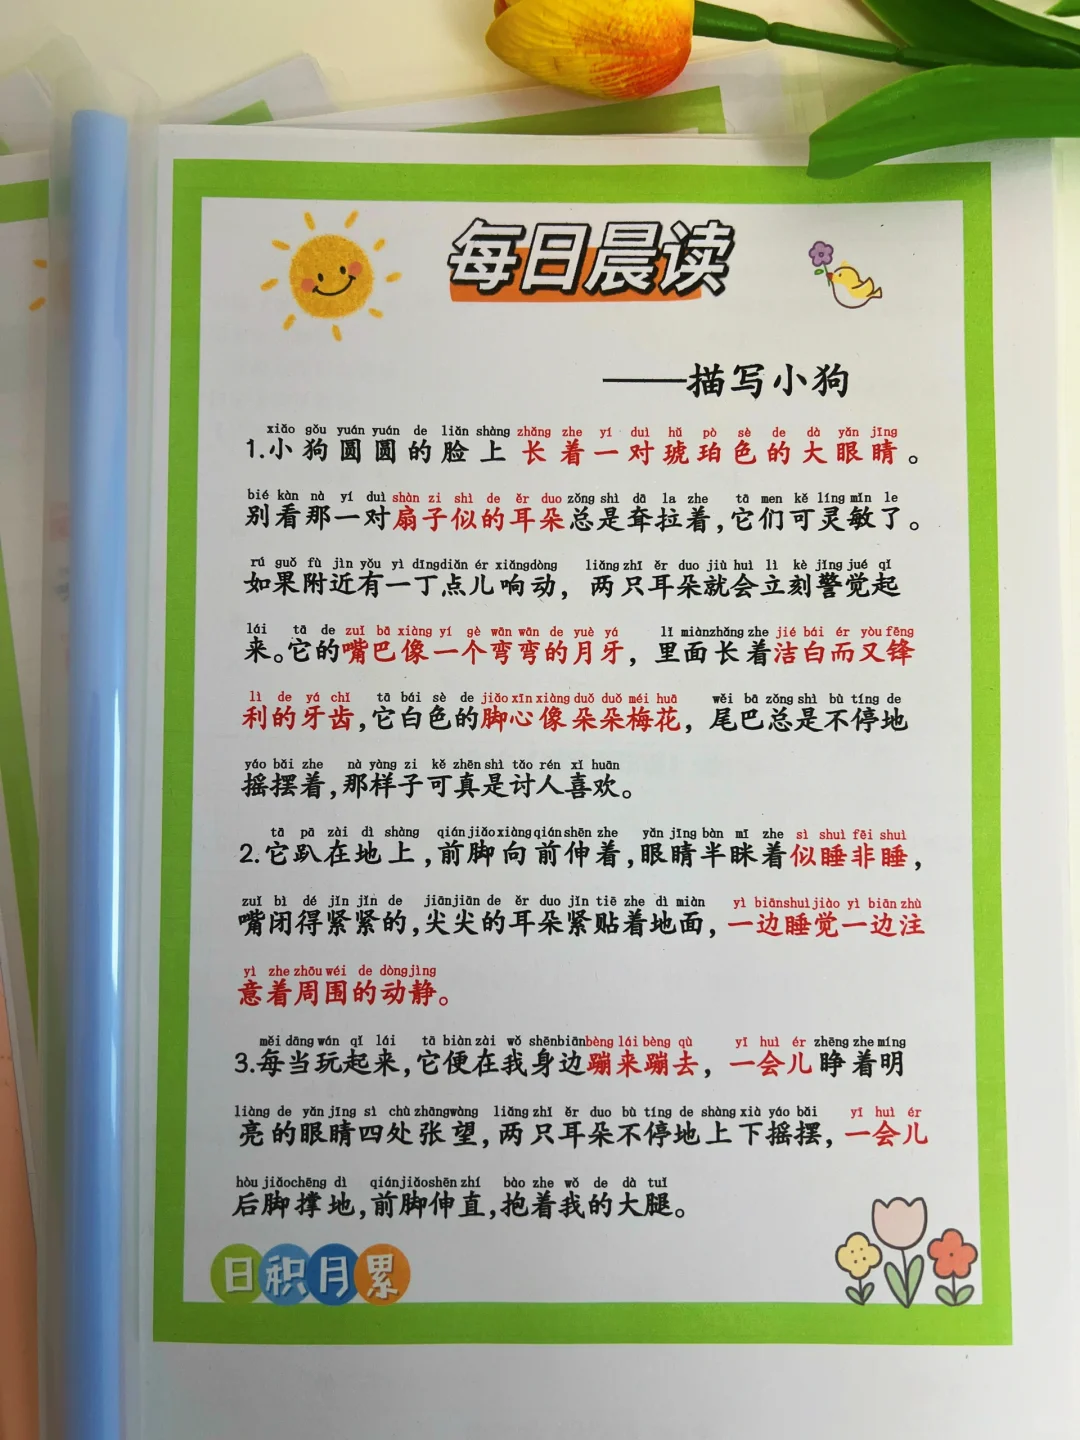 每日晨读
——描写小狗
xiǎo gǒu yuán yuán de liǎn shàng zhǎng zhe yí duì hǔ pò sè de dà yǎn jīng
1.小狗圆圆的脸上长着一对琥珀色的大眼睛。
bié kàn nà yí duì shàn zi shì de ěr duo zǒng shì dā la zhe tā men kě líng mǐn le
别看那一对扇子似的耳朵总是耷拉着,它们可灵敏了。
rú guǒ fù jìn yǒu yì dīng diǎn ér xiǎng dòng liǎng zhī ěr duo jiù huì lì kè jǐng jué qǐ
如果附近有一丁点儿响动，两只耳朵就会立刻警觉起
lái tā de zuǐ bā xiàng yí gè wān wān de yuè yá lǐ miàn zhǎng zhe jié bái ér yòu fēng
来。它的嘴巴像一个弯弯的月牙，里面长着洁白而又锋
lì de yá chǐ tā bái sè de jiǎo xīn xiàng duǒ duǒ méi huā wěi bā zǒng shì bù tíng de
利的牙齿,它白色的脚心像朵朵梅花，尾巴总是不停地
yáo bǎi zhe nà yàng zi kě zhēn shì tǎo rén xǐ huān
摇摆着,那样子可真是讨人喜欢。
tā pā zài dì shàng qián jiǎo xiàng qián shēn zhe yǎn jīng bàn mī zhe sì shuì fēi shuì
2.它趴在地上,前脚向前伸着,眼睛半眯着似睡非睡,
zuǐ bì dé jǐn jǐn de jiān jiān de ěr duo jǐn tiē zhe dì miàn yì biān shuì jiào yì biān zhù
嘴闭得紧紧的,尖尖的耳朵紧贴着地面，一边睡觉一边注
yì zhe zhōu wéi de dòng jìng
意着周围的动静。
měi dāng wán qǐ lái tā biàn zài wǒ shēn biān bèng lái bèng qù yī huì ér zhēng zhe míng
3.每当玩起来,它便在我身边蹦来蹦去，一会儿睁着明
liàng de yǎn jīng sì chù zhāng wàng liǎng zhī ěr duo bù tíng de shàng xià yáo bǎi yī huì ér
亮的眼睛四处张望,两只耳朵不停地上下摇摆，一会儿
hòu jiǎo chēng dì qián jiǎo shēn zhí bào zhe wǒ de dà tuǐ
后脚撑地,前脚伸直,抱着我的大腿。
日积月累